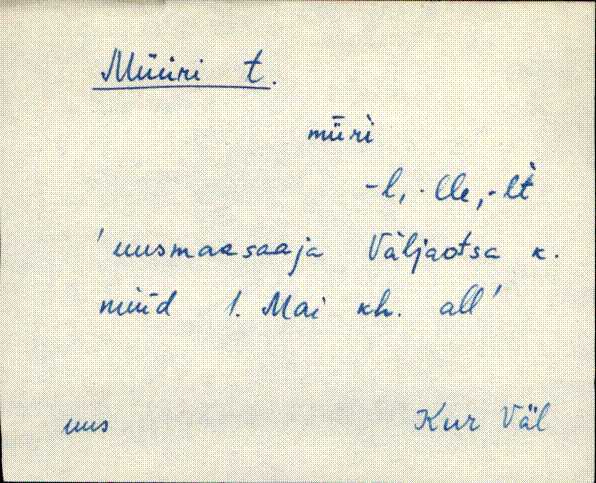 Müüri t.
mǖri̇̀
-l, -lle, -lt
'uusmaasaaja Väljaotsa k.
nüüd 1. Mai kh. all'
uus Kur Väl